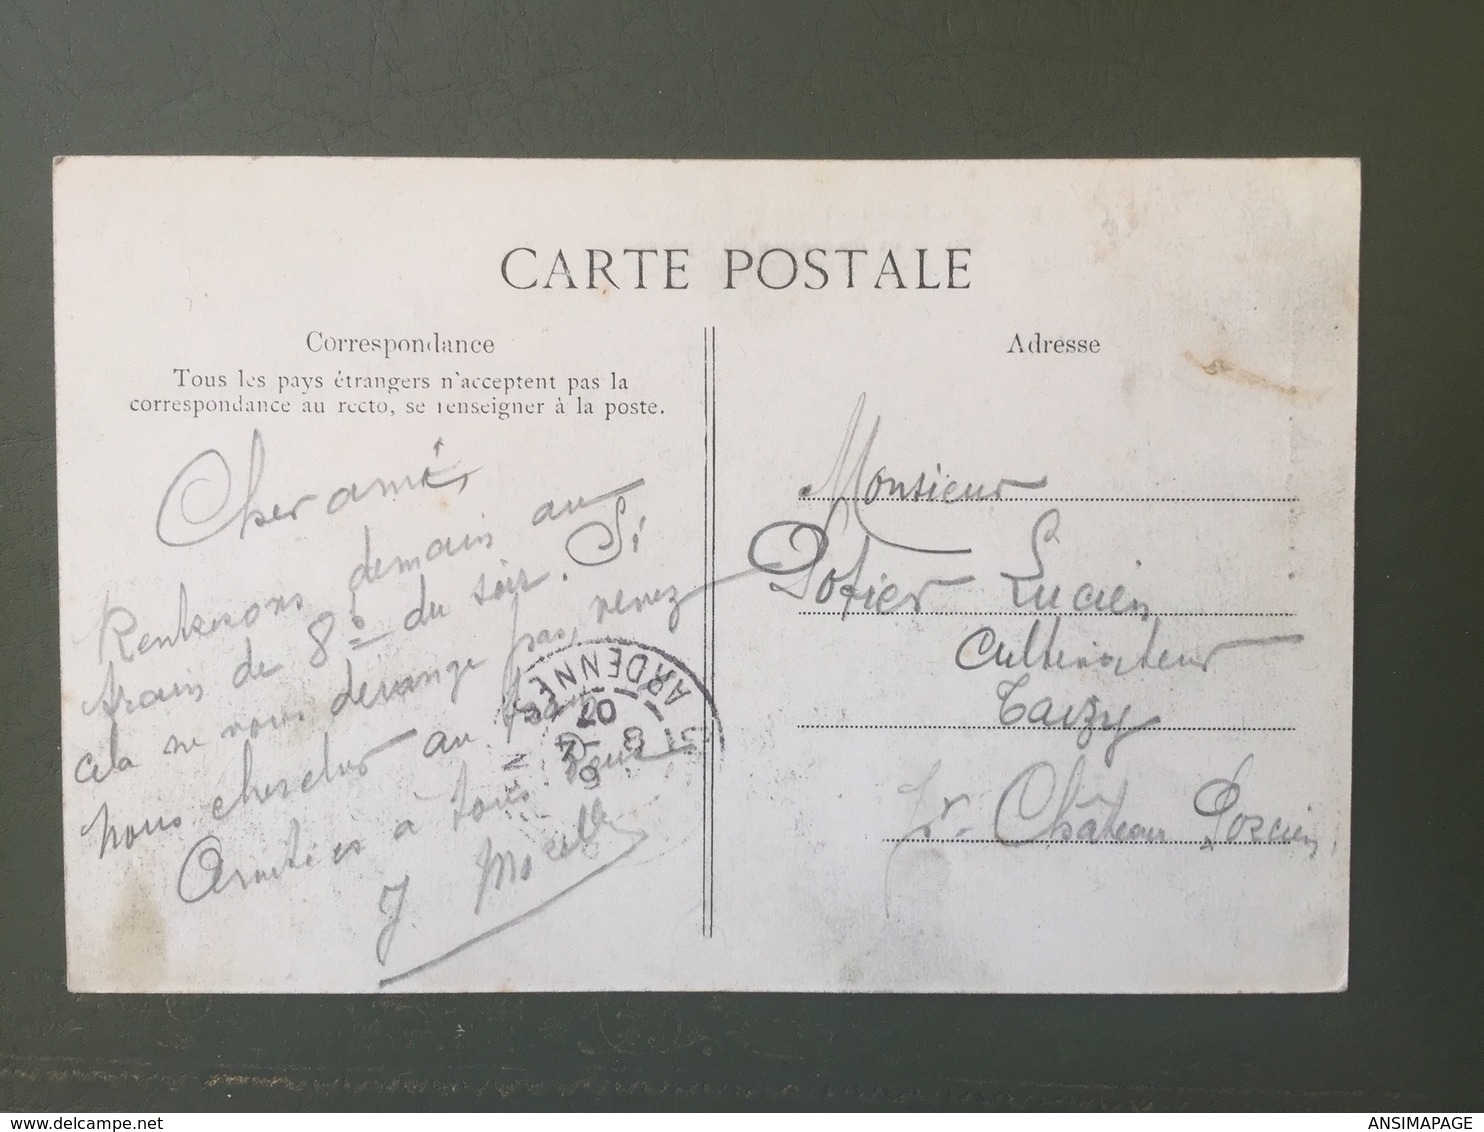 CARTE POSTALE
Correspondance
Tous les pays étrangers n'acceptent pas la
correspondance au recto, se renseigner à la poste.
Cher ami,
Rentrerons demain au
train de 8h du soir. Si
cela ne vous dérange pas, venez
nous chercher au train
Amitiés à tous deux
J. Morelle
ARDENNES
07
Adresse
Monsieur
Potier Lucien
Cultivateur
Taizy
Pr. Château Porcien
delcampe.net
ANSIMAPAGE